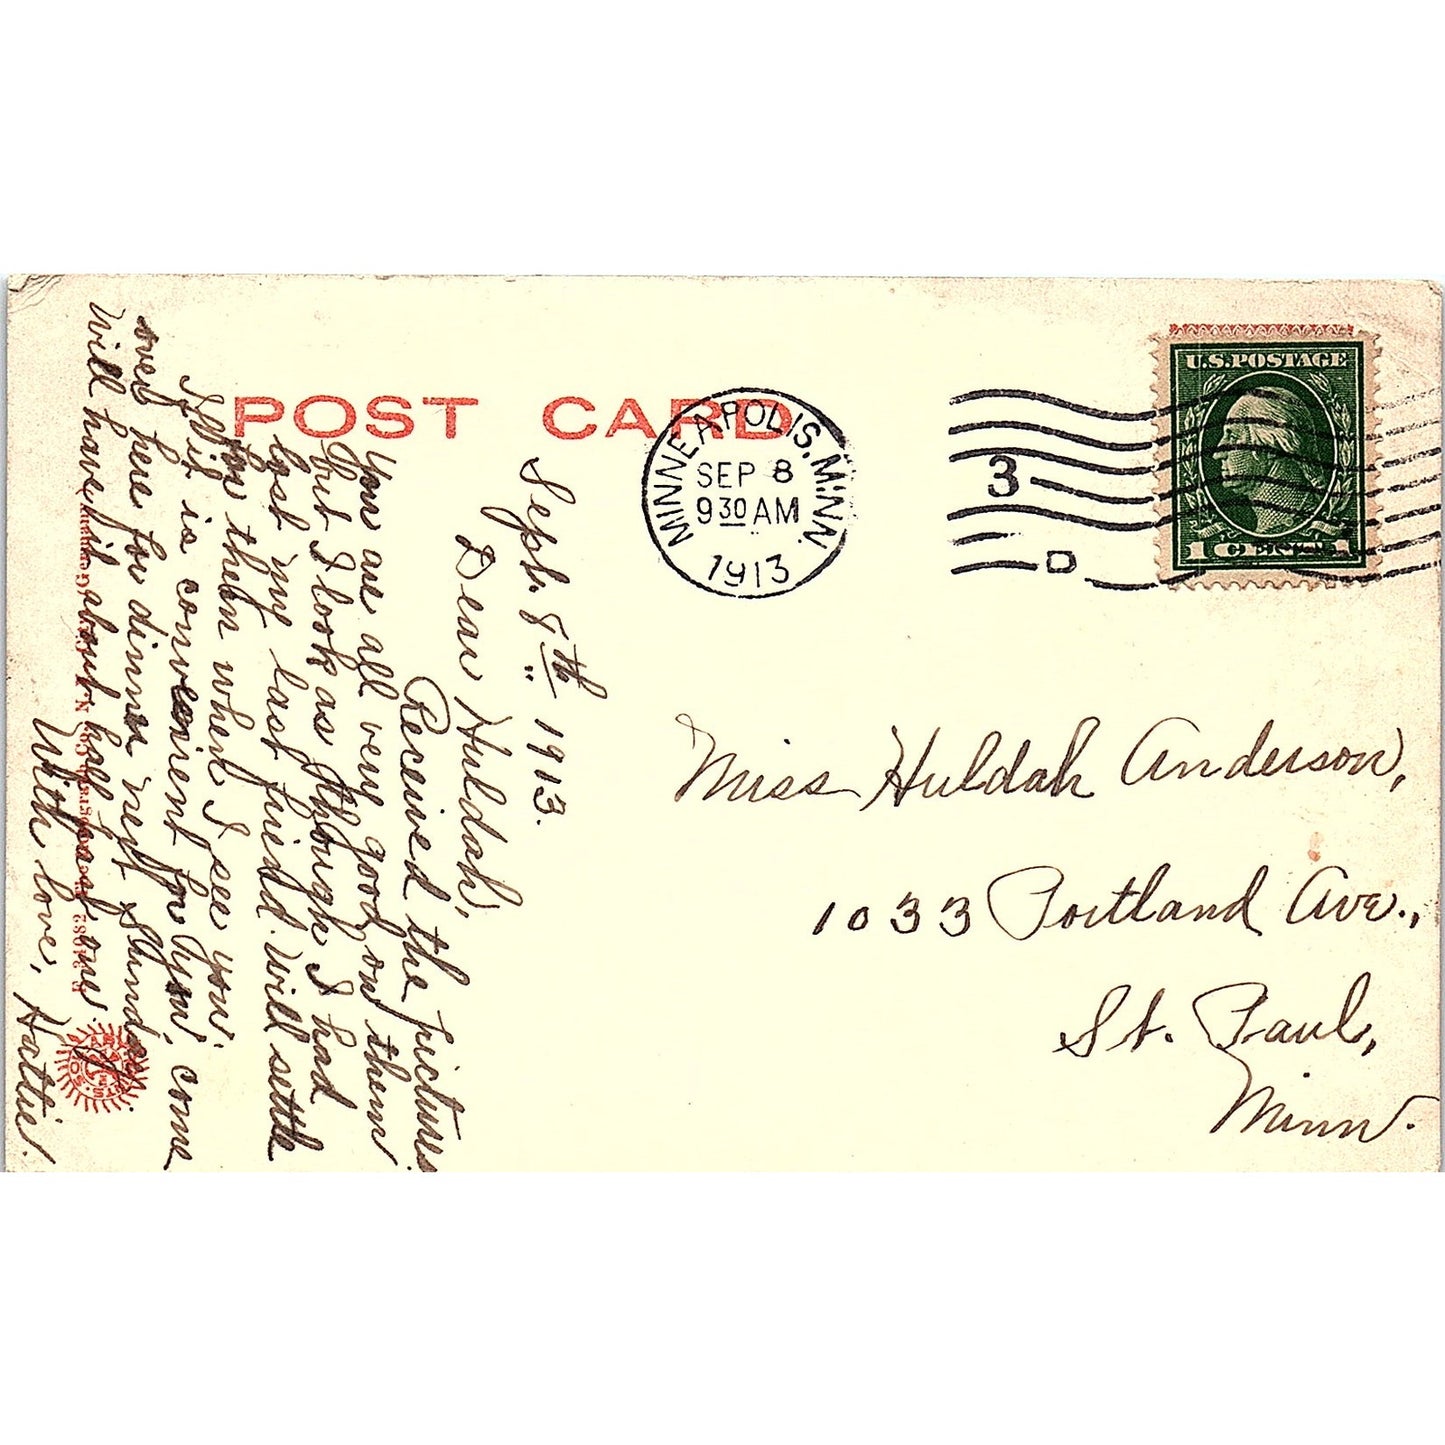 POST CARD
MINNEAPOLIS, MINN.
SEP 8
9 30 AM
1913
3
D
U.S. POSTAGE
1 CENT 1
Sept. 8th 1913.
Dear Huldah,
Received the pictures.
You are all very good on them
but I look as though I had
lost my last friend. Will settle
with you then when I see you.
If it is convenient for you, come
over here for dinner next Sunday.
Will have it about half past one.
With love, Hattie.
Miss Huldah Anderson,
1033 Portland Ave.,
St. Paul,
Minn.